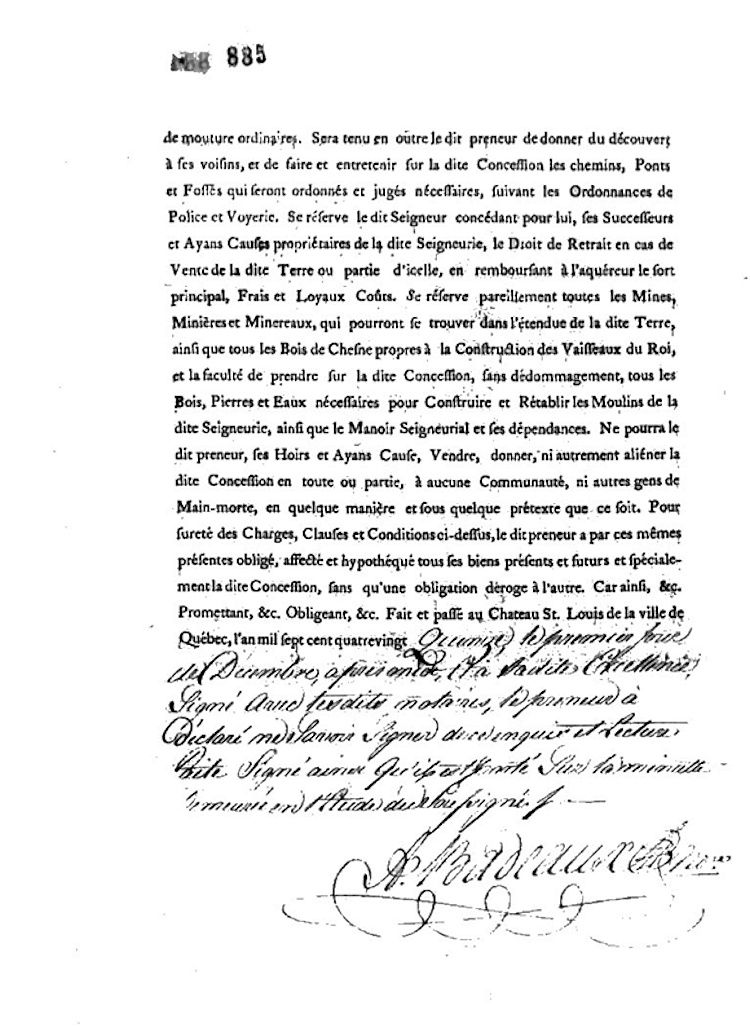 885
de mouture ordinaires. Sera tenu en outre le dit preneur de donner du découvert
à ses voisins, et de faire et entretenir sur la dite Concession les chemins, Ponts
et Fossés qui seront ordonnés et jugés nécessaires, suivant les Ordonnances de
Police et Voyerie. Se réserve le dit Seigneur concédant pour lui, ses Successeurs
et Ayans Causes propriétaires de la dite Seigneurie, le Droit de Retrait en cas de
Vente de la dite Terre ou partie d'icelle, en remboursant à l'aquéreur le sort
principal, Frais et Loyaux Coûts. Se réserve pareillement toutes les Mines,
Minières et Minereaux, qui pourront se trouver dans l'étendue de la dite Terre,
ainsi que tous les Bois de Chesne propres à la Construction des Vaisseaux du Roi,
et la faculté de prendre sur la dite Concession, sans dédommagement, tous les
Bois, Pierres et Eaux nécessaires pour Construire et Rétablir les Moulins de la
dite Seigneurie, ainsi que le Manoir Seigneurial et ses dépendances. Ne pourra le
dit preneur, ses Hoirs et Ayans Cause, Vendre, donner, ni autrement aliéner la
dite Concession en toute ou partie, à aucune Communauté, ni autres gens de
Main-morte, en quelque manière et sous quelque prétexte que ce soit. Pour
sureté des Charges, Clauses et Conditions ci-dessus, le dit preneur a par ces mêmes
présentes obligé, affecté et hypothéqué tous ses biens présents et futurs et spéciale-
ment la dite Concession, sans qu'une obligation déroge à l'autre. Car ainsi, &c.
Promettant, &c. Obligeant, &c. Fait et passé au Chateau St. Louis de la ville de
Québec, l'an mil sept cent quatrevingt Quinze, le premier jour
de Décembre, après midi, & a Sadite Excellence,
Signé avec lesdits notaires, le preneur à
Déclaré ne Savoir Signer de ce enquis et Lecture
faite Signé ainsi qu'il est porté Sur la minutte
demeurée en l'Etude du Soussigné
A. Badeaux